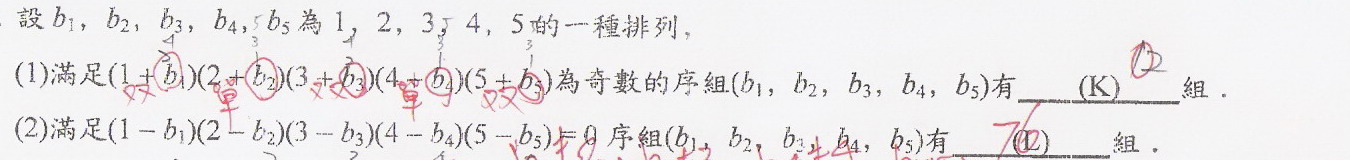 設 b₁,b₂,b₃,b₄,b₅ 為 1,2,3,4,5 的一種排列,
(1)滿足(1+b₁)(2+b₂)(3+b₃)(4+b₄)(5+b₅)為奇數的序組(b₁,b₂,b₃,b₄,b₅)有 (K) 12 組.
双 單 双 單 双
(2)滿足(1−b₁)(2−b₂)(3−b₃)(4−b₄)(5−b₅)=0 序組(b₁,b₂,b₃,b₄,b₅)有 (L) 組.